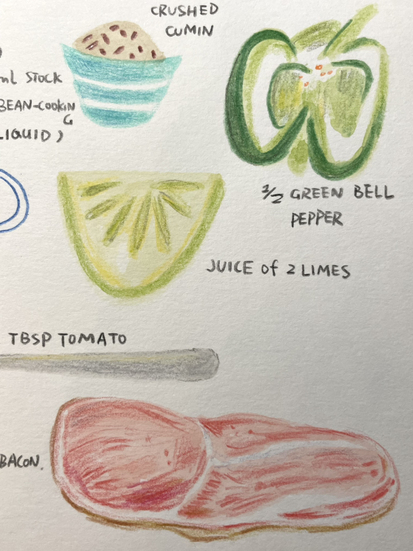 CRUSHED
CUMIN
ml STOCK
BEAN-COOKIN
G
LIQUID)
3/2 GREEN BELL
PEPPER
JUICE of 2 LIMES
TBSP TOMATO
BACON.